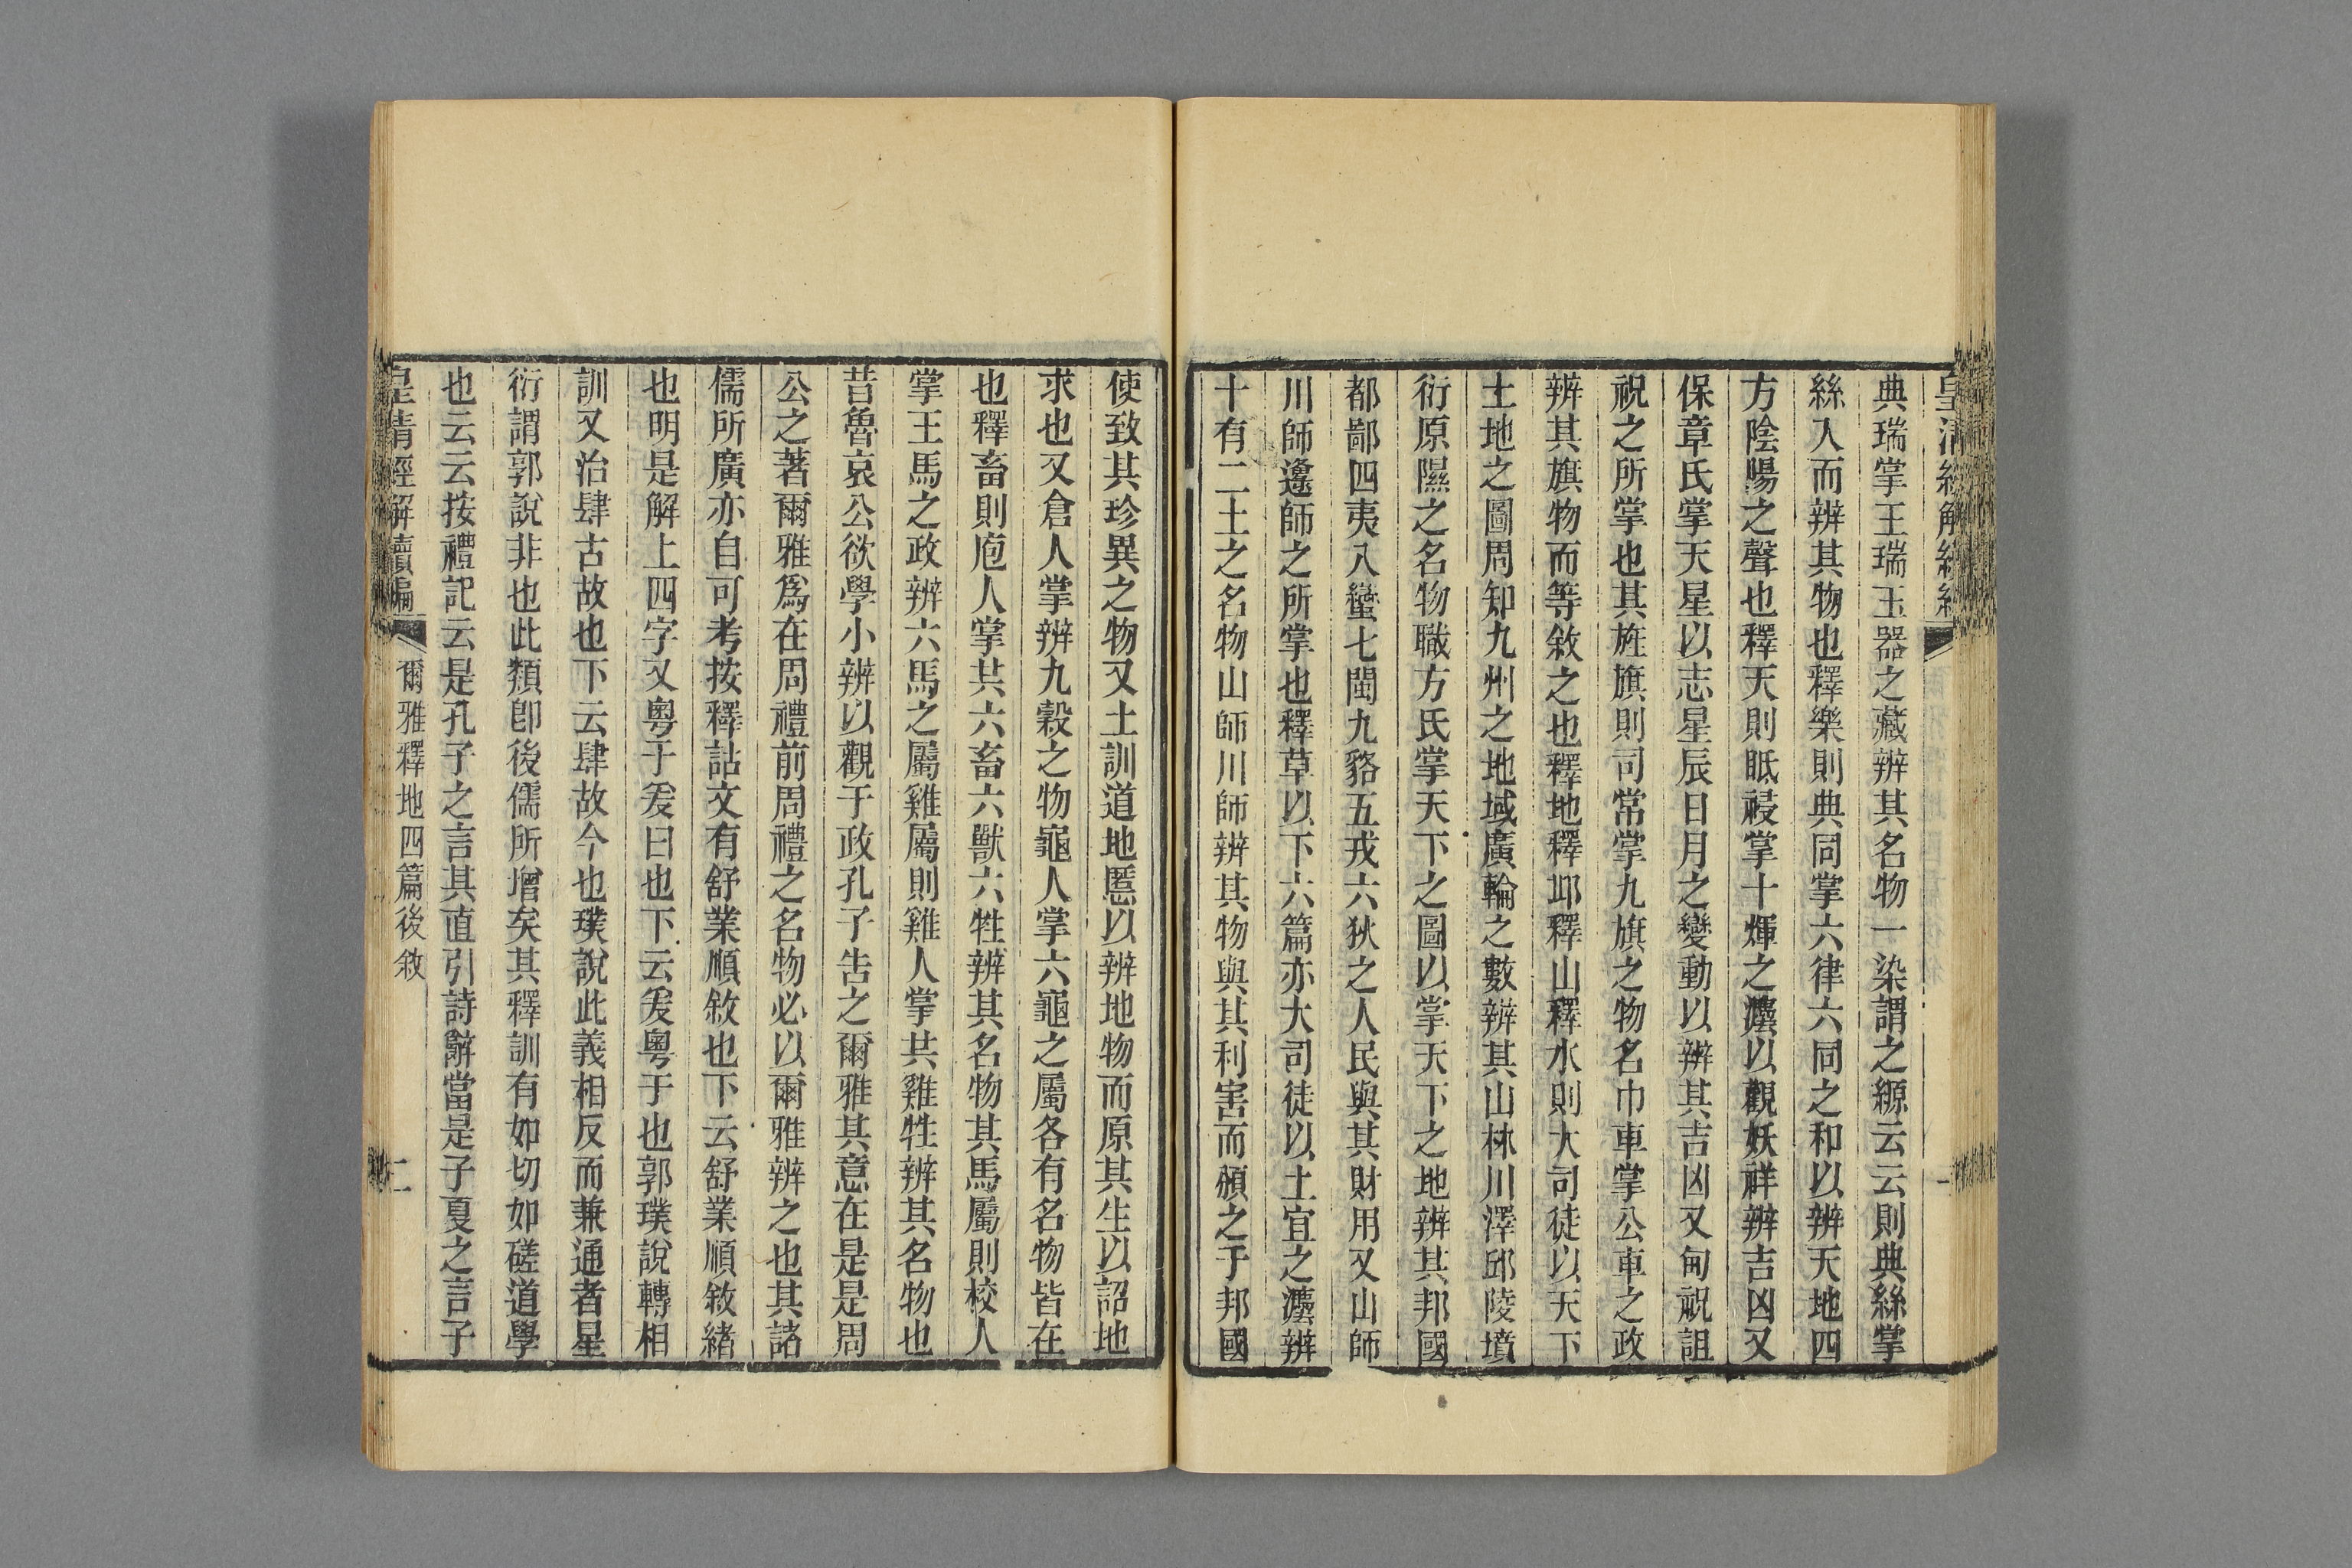 典瑞掌王瑞玉器之藏辨其名物一染謂之縓云云則典絲掌
絲入而辨其物也釋樂則典同掌六律六同之和以辨天地四
方陰陽之聲也釋天則眡祲掌十煇之灋以觀妖祥辨吉凶又
保章氏掌天星以志星辰日月之變動以辨其吉凶又甸祝詛
祝之所掌也其旌旗則司常掌九旗之物名巾車掌公車之政
辨其旗物而等敘之也釋地釋邱釋山釋水則大司徒以天下
土地之圖周知九州之地域廣輪之數辨其山林川澤邱陵墳
衍原隰之名物職方氏掌天下之圖以掌天下之地辨其邦國
都鄙四夷八蠻七閩九貉五戎六狄之人民與其財用又山師
川師邍師之所掌也釋草以下六篇亦大司徒以土宜之灋辨
十有二土之名物山師川師辨其物與其利害而頒之于邦國
使致其珍異之物又土訓道地慝以辨地物而原其生以詔地
求也又倉人掌辨九穀之物龜人掌六龜之屬各有名物皆在
也釋畜則庖人掌共六畜六獸六牲辨其名物其馬屬則校人
掌王馬之政辨六馬之屬雞屬則雞人掌共雞牲辨其名物也
昔魯哀公欲學小辨以觀于政孔子告之爾雅其意在是是周
公之著爾雅爲在周禮前周禮之名物必以爾雅辨之也其諸
儒所廣亦自可考按釋詁文有舒業順敘也下云舒業順敘緒
也明是解上四字又粵于爰曰也下云爰粵于也郭璞說轉相
訓又治肆古故也下云肆故今也璞說此義相反而兼通者星
衍謂郭說非也此類卽後儒所增矣其釋訓有如切如磋道學
也云云按禮記云是孔子之言其直引詩辭當是子夏之言子
皇清經解續編 爾雅釋地四篇後敘 二